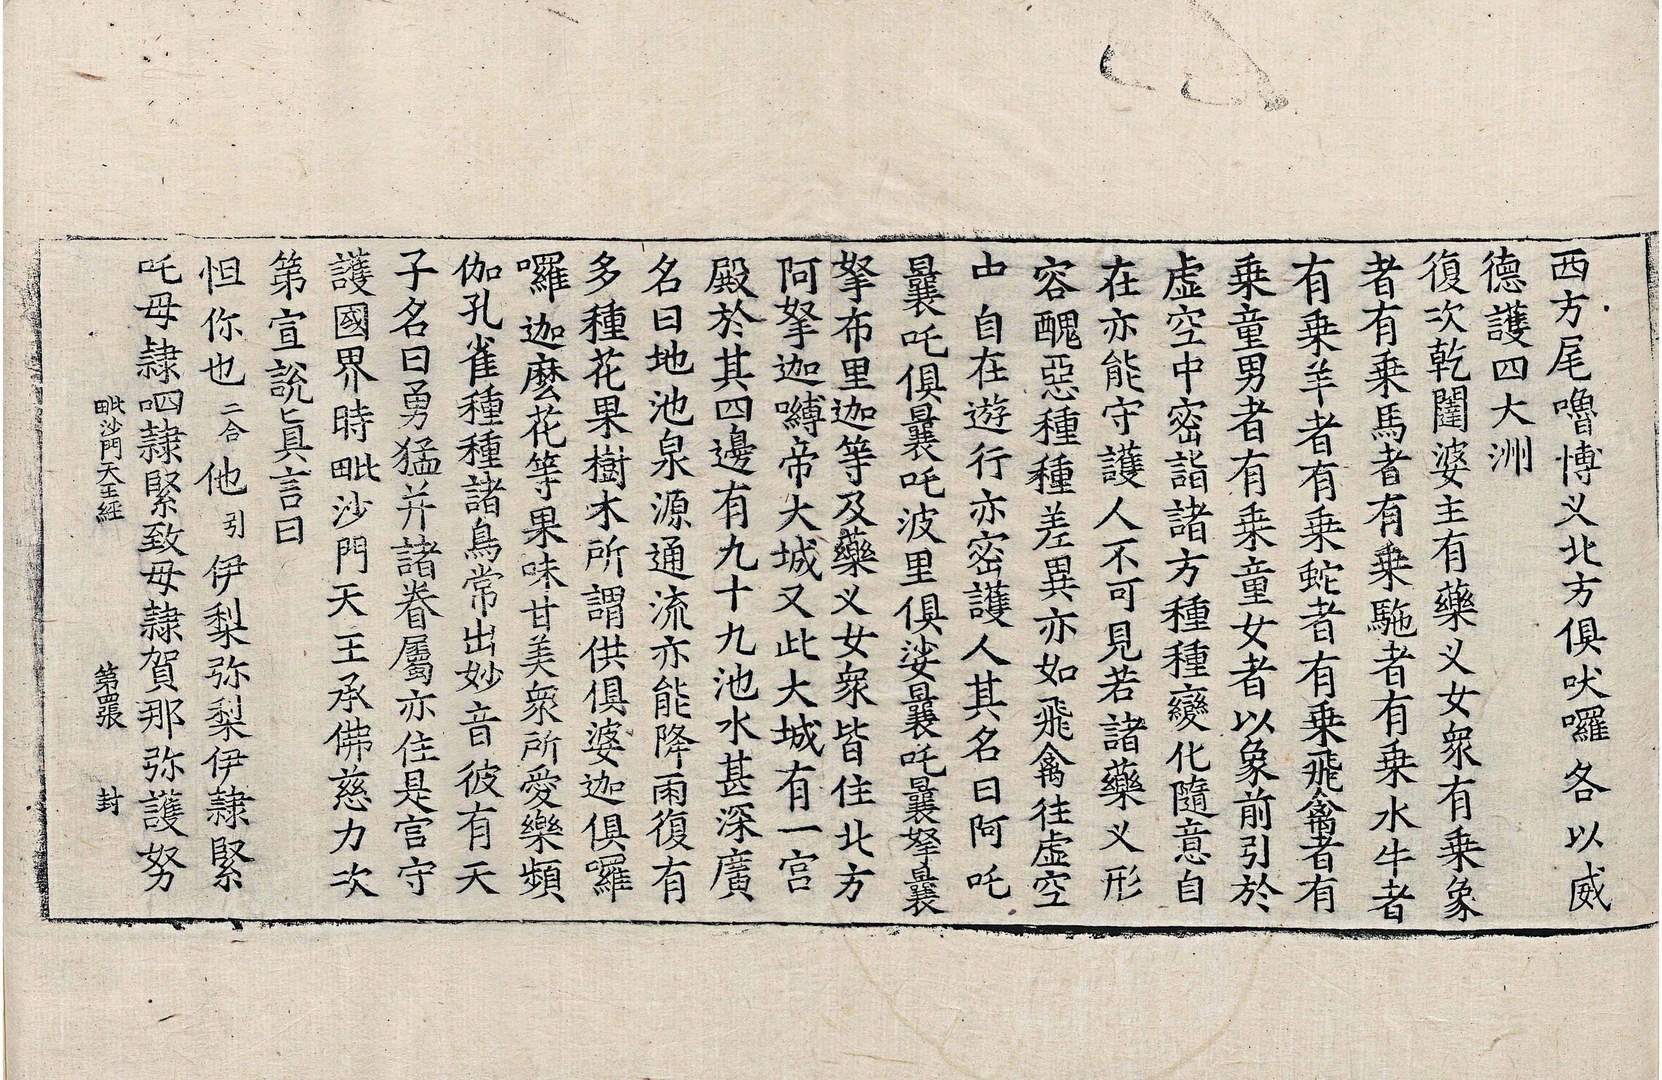 西方尾嚕博义北方俱吠囉各以威
德護四大洲
復次乾闥婆主有藥义女衆有乗象
者有乗馬者有乗駞者有乗水牛者
有乗羊者有乗蛇者有乗飛禽者有
乗童男者有乗童女者以象前引於
虚空中密詣諸方種種變化隨意自
在亦能守護人不可見若諸藥义形
容醜惡種種差異亦如飛禽往虚空
中自在遊行亦密護人其名曰阿吒
曩吒俱曩吒波里俱娑曩吒曩拏曩
拏布里迦等及藥义女衆皆住北方
阿拏迦嚩帝大城又此大城有一宫
殿於其四邊有九十九池水甚深廣
名曰地池泉源通流亦能降雨復有
多種花果樹木所謂供俱婆迦俱囉
囉迦麼花等果味甘美衆所愛樂頻
伽孔雀種種諸鳥常出妙音彼有天
子名曰勇猛并諸眷屬亦住是宫守
護國界時毗沙門天王承佛慈力次
第宣說真言曰
怛你也二合他引伊梨弥梨伊隷緊
吒毋隷呬隷緊致毋隷賀那弥護努
毗沙門天王經　第四張　封